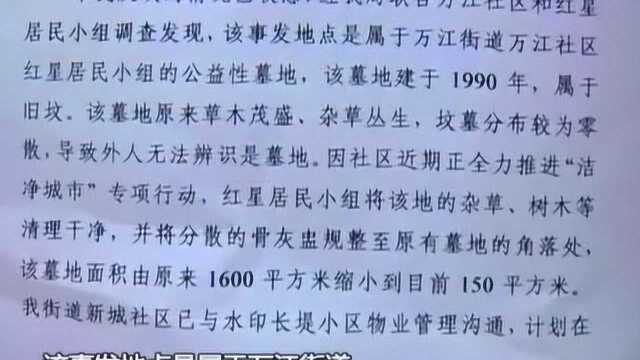 居民小组调查发现，该事发地点是属于万江街道万江社区
红星居民小组的公益性墓地，该墓地建于 1990 年，属于
旧坟。该墓地原来草木茂盛、杂草丛生，坟墓分布较为零
散，导致外人无法辨识是墓地。因社区近期正全力推进“洁
净城市”专项行动，红星居民小组将该地的杂草、树木等
清理干净，并将分散的骨灰盅规整至原有墓地的角落处，
该墓地面积由原来 1600 平方米缩小到目前 150 平方米。
我街道新城社区已与水印长堤小区物业管理沟通，计划在
该事发地点是属于万江街道